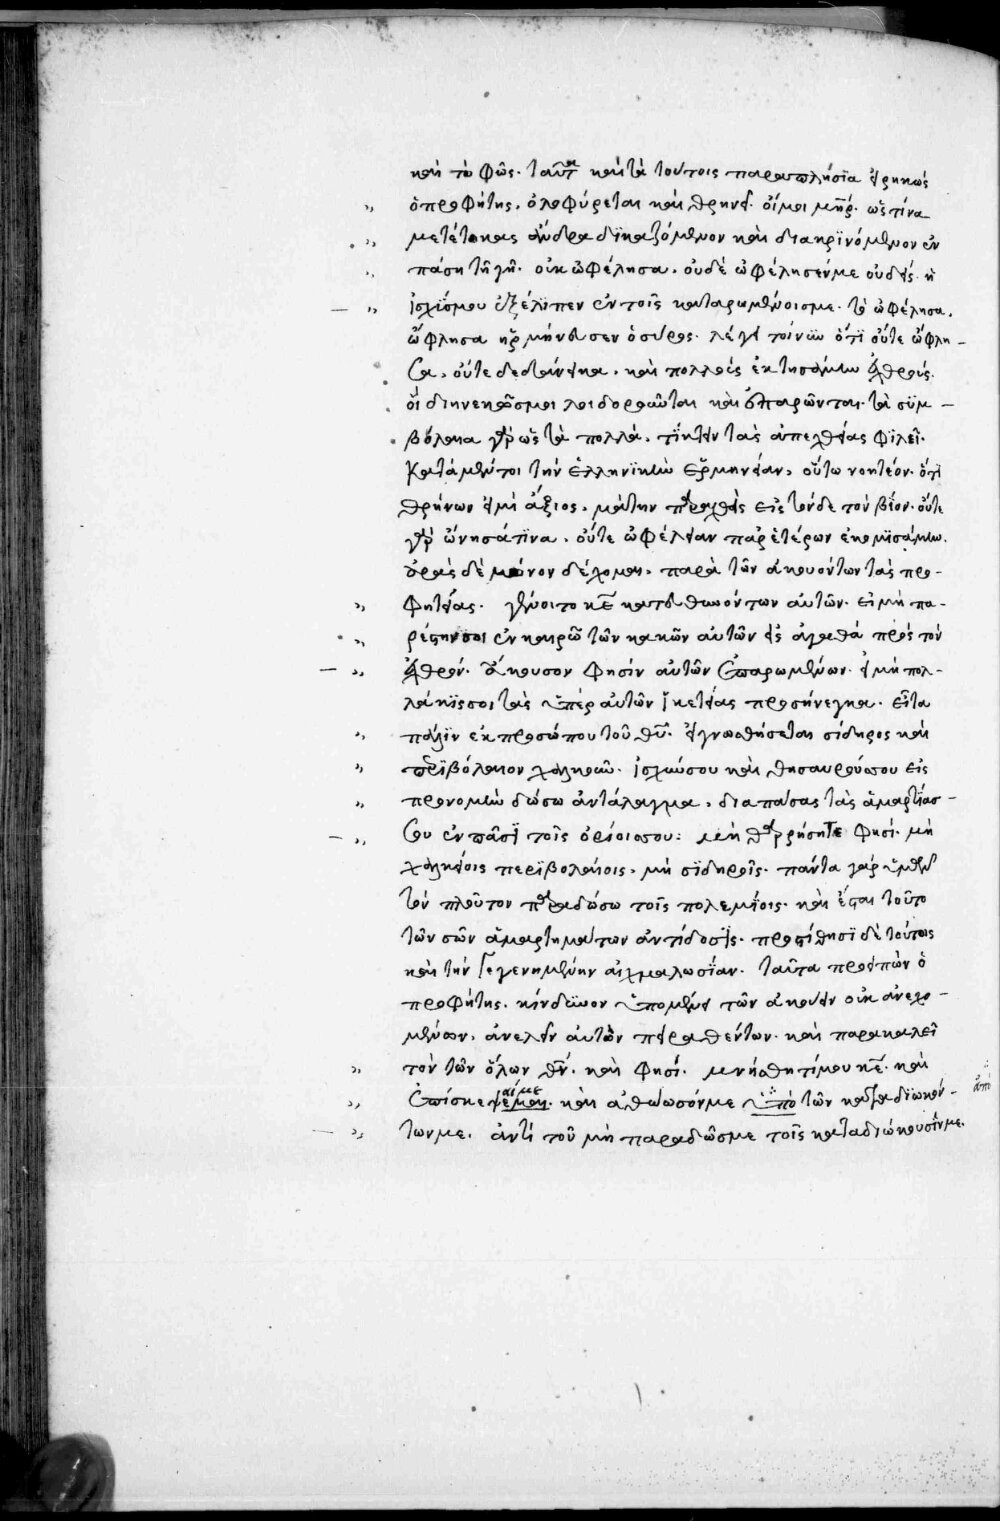 καὶ τὸ φῶς. ταῦτα καὶ τὰ τούτοις παραπλήσϊα εἰρηκὼς
ὁ προφήτης, ὀλοφύρεται καὶ θρηνεῖ. οἴμοι μῆρ. ὡς τίνα
με τέτοκας ἄνδρα δϊκαζόμενον καὶ διακρϊνόμενον ἐν
πάσῃ τῇ γῇ. οὐκ ὠφέλησα, οὐδὲ ὠφέλησέν με οὐδείς. ἡ
ἰσχΰς μου ἐξέλϊπεν ἐν τοῖς καταρωμένοις με. τὸ ὠφέλησα,
ὤφλησα ἡρμήνευσεν ὁ σύρος. λέγει τοίνϋν ὅτϊ οὔτε ὤφλη-
σα, οὔτε δεδάνεικα, καὶ πολλοὺς ἐκτησάμην ἐχθρούς.
οἳ διηνεκῶς μοι λοιδοροῦνται καὶ ἐπαρῶνται. τὰ σϋμ-
βόλαια γὰρ ὡς τὰ πολλὰ, τΐκτειν τὰς ἀπεχθείας φϊλεῖ.
κατὰ μέντοι τὴν ἑλληνϊκὴν ἑρμηνείαν, οὕτω νοητέον. ὅτϊ
θρήνων εἰμὶ ἄξιος, μάτην παραχθεὶς εἰς τόνδε τὸν βίον. οὔτε
γὰρ ὤνησά τϊνα, οὔτε ὠφέλειαν παρ ἑτέρων ἐκομϊσάμην.
ἀρὰς δὲ μόνον δέχομαι, παρὰ τῶν ἀκουόντων τὰς προ-
φητείας. γένοιτο κε κατευθυνόντων αὐτῶν. εἰ μὴ πα-
ρέστην σοι ἐν καιρῷ τῶν κακῶν αὐτῶν εἰς ἀγαθὰ πρὸς τὸν
ἐχθρόν. ἄκουσον φησὶν αὐτῶν ἐπαρωμένων. εἰ μὴ πολ-
λάκϊς σοι τὰς ὑπὲρ αὐτῶν ἱκετείας προσήνεγκα. εἶτα
πάλϊν ἐκ προσώπου τοῦ θυ. εἰ γνωσθήσεται σίδηρος καὶ
περϊβόλαιον χαλκοῦν. ἰσχύν σου καὶ θησαυρούς σου εἰς
προνομὴν δώσω ἀντάλαγμα, διὰ πάσας τὰς ἁμαρτίας-
σου ἐν πᾶσϊ τοῖς ὁρίοις σου: μὴ θαρρήσητε φησὶ. μὴ
χαλκείοις περϊβολαίοις, μὴ σϊδηροῖς. πάντα γὰρ ὑμῶν
τὸν πλοῦτον παραδώσω τοῖς πολεμίοις. καὶ ἔσται τοῦτο
τῶν σῶν ἁμαρτημάτων ἀντίδοσϊς. προστίθησϊ δὲ τούτοις
καὶ τὴν γεγενημένην αἰχμαλωσΐαν. ταῦτα προειπὼν ὁ
προφήτης. κίνδϋνον ὑπομένει τῶν ἀκούειν οὐκ ἀνεχο-
μένων, ἀνελεῖν αὐτὸν πειραθέντων. καὶ παρακαλεῖ
τὸν τῶν ὅλων θν. καὶ φησί. μνήσθητί μου κε. καὶ
ἐπίσκεψαί με. καὶ ἀθώωσόν με ὑπὸ τῶν καταδϊωκόν- ἀπὸ
των με. ἀντὶ τοῦ μὴ παραδῷς με τοῖς καταδιώκουσίν με.